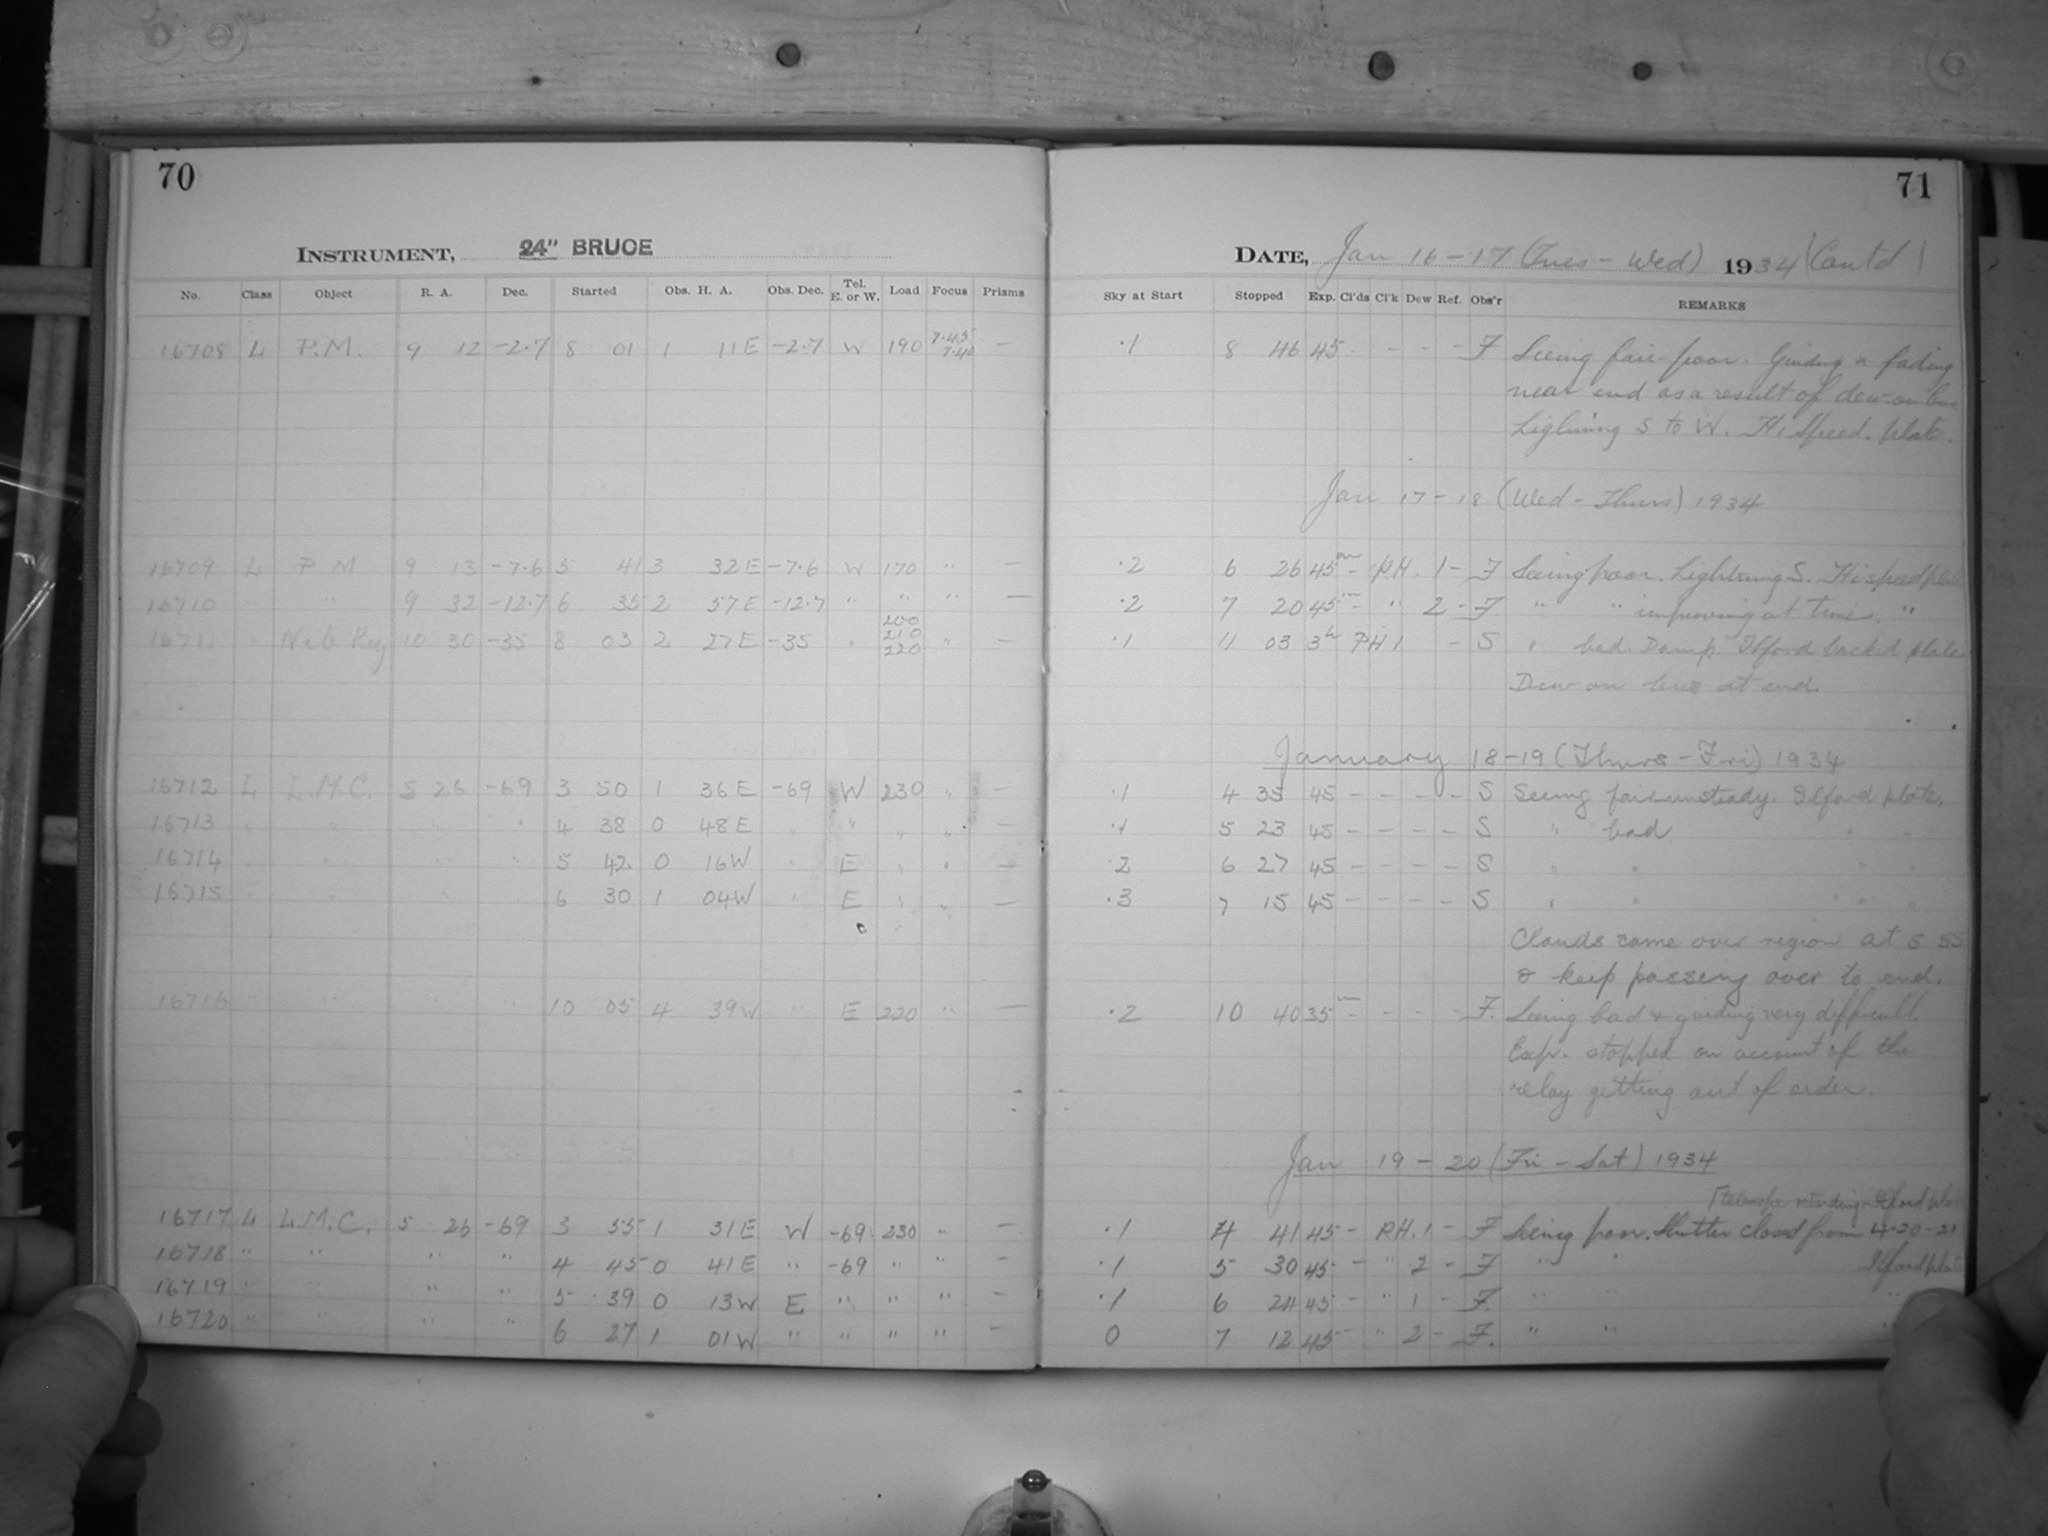 70
INSTRUMENT, 24" BRUCE
No. Class Object R. A. Dec. Started Obs. H. A. Obs. Dec. Tel. E. or W. Load Focus Prisms
16708 L P.M. 9 12 -2.7 8 01 1 11E -2.7 W 190 7.45 7.40 —
16709 L P M 9 13 -7.6 5 41 3 32E -7.6 W 170 " —
16710 " " 9 32 -12.7 6 35 2 57E -12.7 " " " —
16711 " Neb Reg 10 30 -35 8 03 2 27E -35 " 200 210 220 " —
16712 L L.M.C. 5 26 -69 3 50 1 36E -69 W 230 " —
16713 " " " " 4 38 0 48E " " " " —
16714 " " " " 5 42 0 16W " E " " —
16715 " " " " 6 30 1 04W " E " " —
16716 " " " " 10 05 4 39W " E 220 " —
16717 L L.M.C. 5 26 -69 3 55 1 31E W -69 230 " —
16718 " " " " 4 45 0 41E " -69 " " —
16719 " " " " 5 39 0 13W E " " " —
16720 " " " " 6 27 1 01W " " " " —
71
DATE, Jan 16-17 (Tues - Wed) 1934 (Cont'd)
Sky at Start Stopped Exp. Cl'ds Cl'k Dew Ref. Obs'r REMARKS
.1 8 46 45 - - - - F Seeing fair-poor. Guiding * fading
near end as a result of dew on lens
Lightning S to W. Hi Speed. plate.
Jan 17-18 (Wed - Thurs) 1934
.2 6 26 45m - PH. 1 - F Seeing poor. Lightning S. Hi speed plate
.2 7 20 45m - " 2 - F " " improving at times. "
.1 11 03 3h PH 1 - S " bad. Damp. Ilford backed plate
Dew on lens at end.
January 18-19 (Thurs - Fri) 1934
.1 4 35 45 - - - - S Seeing fair unsteady. Ilford plate.
.1 5 23 45 - - - - S " bad " "
.2 6 27 45 - - - - S " " " "
.3 7 15 45 - - - - S " " " " "
Clouds came over region at 5 55
& keep passing over to end.
.2 10 40 35m - - - - F. Seeing bad & guiding very difficult.
Exp. stopped on account of the
relay getting out of order.
Jan 19-20 (Fri - Sat) 1934
Ilford plate
.1 4 41 45 - PH. 1 - F Seeing poor. Shutter closed from 4-20-21
.1 5 30 45 - " 2 - F " " Ilford plate
.1 6 24 45 - " 1 - F. " " "
0 7 12 45 - " 2 - F. " " "